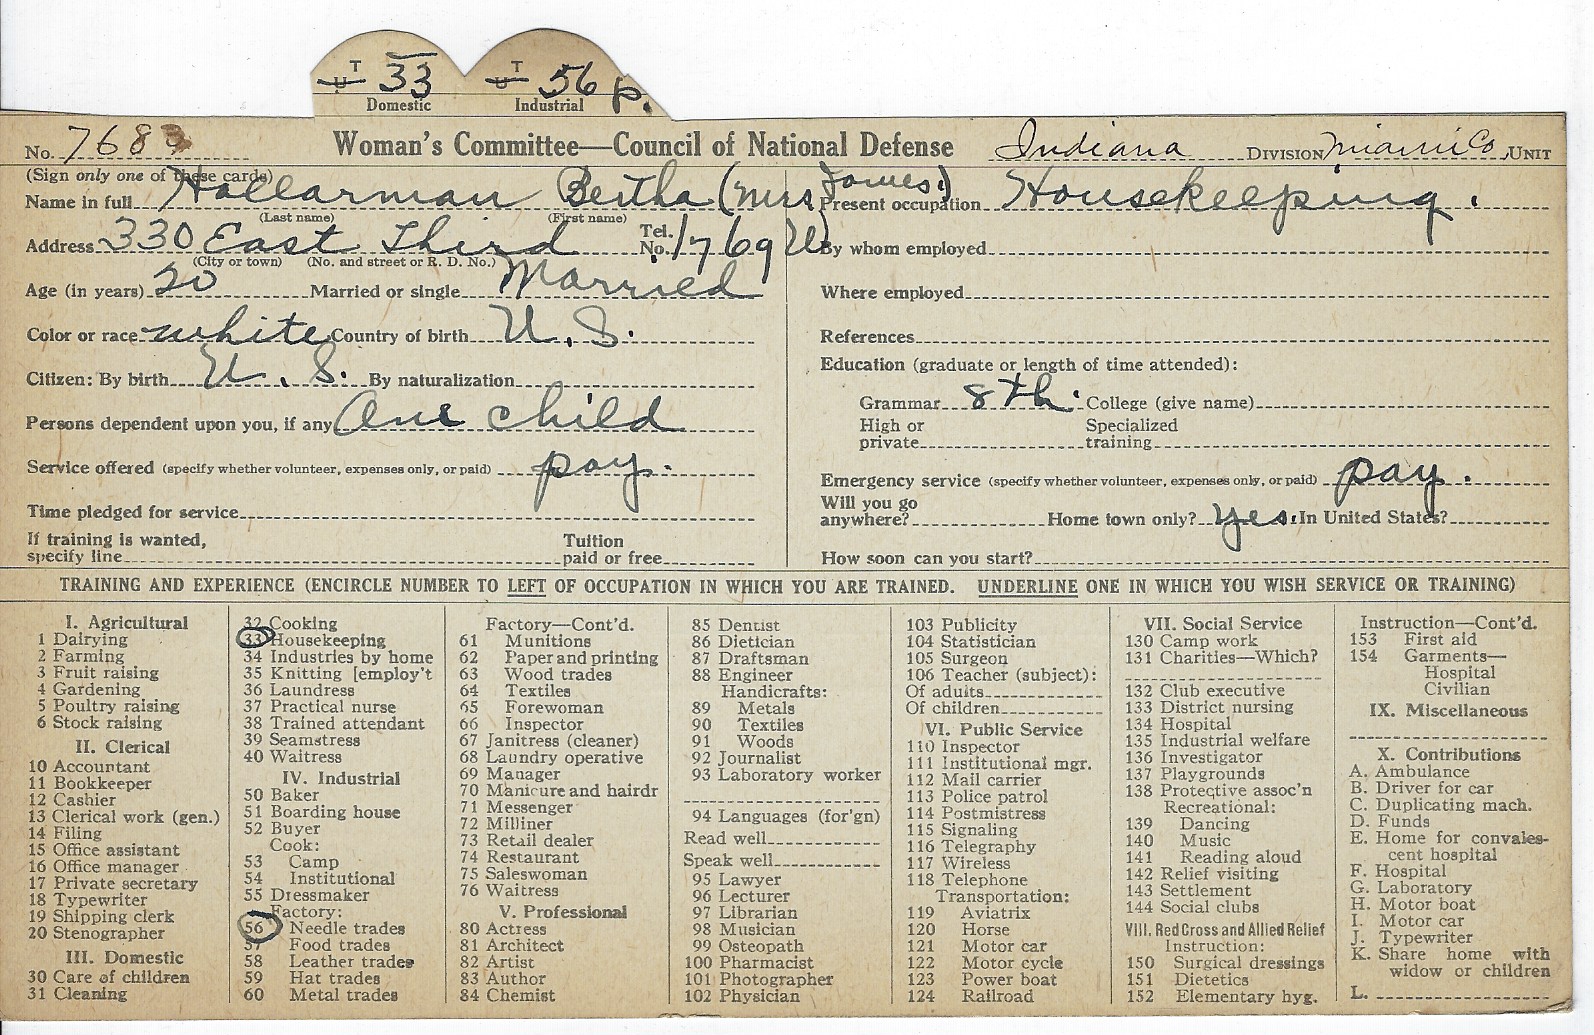 T 33 T 56 p.
U U
Domestic Industrial
No. 768
Woman's Committee—Council of National Defense
Indiana DIVISION Miami Co. UNIT
(Sign only one of these cards)
Name in full Hollarman Bertha (Mrs. James.)
(Last name) (First name)
Address 330 East Third Tel. No. 1769 U
(City or town) (No. and street or R. D. No.)
Age (in years) 20 Married or single Married
Color or race white Country of birth U. S.
Citizen: By birth U. S. By naturalization
Persons dependent upon you, if any One child
Service offered (specify whether volunteer, expenses only, or paid) pay.
Time pledged for service
If training is wanted,
specify line Tuition paid or free
Present occupation Housekeeping.
By whom employed
Where employed
References
Education (graduate or length of time attended):
Grammar 8th. College (give name)
High or private Specialized training
Emergency service (specify whether volunteer, expenses only, or paid) pay.
Will you go anywhere? Home town only? Yes. In United States?
How soon can you start?
TRAINING AND EXPERIENCE (ENCIRCLE NUMBER TO LEFT OF OCCUPATION IN WHICH YOU ARE TRAINED. UNDERLINE ONE IN WHICH YOU WISH SERVICE OR TRAINING)
I. Agricultural
1 Dairying
2 Farming
3 Fruit raising
4 Gardening
5 Poultry raising
6 Stock raising
II. Clerical
10 Accountant
11 Bookkeeper
12 Cashier
13 Clerical work (gen.)
14 Filing
15 Office assistant
16 Office manager
17 Private secretary
18 Typewriter
19 Shipping clerk
20 Stenographer
III. Domestic
30 Care of children
31 Cleaning
32 Cooking
33 Housekeeping
34 Industries by home
35 Knitting [employ't
36 Laundress
37 Practical nurse
38 Trained attendant
39 Seamstress
40 Waitress
IV. Industrial
50 Baker
51 Boarding house
52 Buyer
Cook:
53 Camp
54 Institutional
55 Dressmaker
Factory:
56 Needle trades
57 Food trades
58 Leather trades
59 Hat trades
60 Metal trades
Factory—Cont'd.
61 Munitions
62 Paper and printing
63 Wood trades
64 Textiles
65 Forewoman
66 Inspector
67 Janitress (cleaner)
68 Laundry operative
69 Manager
70 Manicure and hairdr
71 Messenger
72 Milliner
73 Retail dealer
74 Restaurant
75 Saleswoman
76 Waitress
V. Professional
80 Actress
81 Architect
82 Artist
83 Author
84 Chemist
85 Dentist
86 Dietician
87 Draftsman
88 Engineer
Handicrafts:
89 Metals
90 Textiles
91 Woods
92 Journalist
93 Laboratory worker
94 Languages (for'gn)
Read well
Speak well
95 Lawyer
96 Lecturer
97 Librarian
98 Musician
99 Osteopath
100 Pharmacist
101 Photographer
102 Physician
103 Publicity
104 Statistician
105 Surgeon
106 Teacher (subject):
Of adults
Of children
VI. Public Service
110 Inspector
111 Institutional mgr.
112 Mail carrier
113 Police patrol
114 Postmistress
115 Signaling
116 Telegraphy
117 Wireless
118 Telephone
Transportation:
119 Aviatrix
120 Horse
121 Motor car
122 Motor cycle
123 Power boat
124 Railroad
VII. Social Service
130 Camp work
131 Charities—Which?
132 Club executive
133 District nursing
134 Hospital
135 Industrial welfare
136 Investigator
137 Playgrounds
138 Protective assoc'n
Recreational:
139 Dancing
140 Music
141 Reading aloud
142 Relief visiting
143 Settlement
144 Social clubs
VIII. Red Cross and Allied Relief
Instruction:
150 Surgical dressings
151 Dietetics
152 Elementary hyg.
Instruction—Cont'd.
153 First aid
154 Garments—
Hospital
Civilian
IX. Miscellaneous
X. Contributions
A. Ambulance
B. Driver for car
C. Duplicating mach.
D. Funds
E. Home for convales-
cent hospital
F. Hospital
G. Laboratory
H. Motor boat
I. Motor car
J. Typewriter
K. Share home with
widow or children
L.